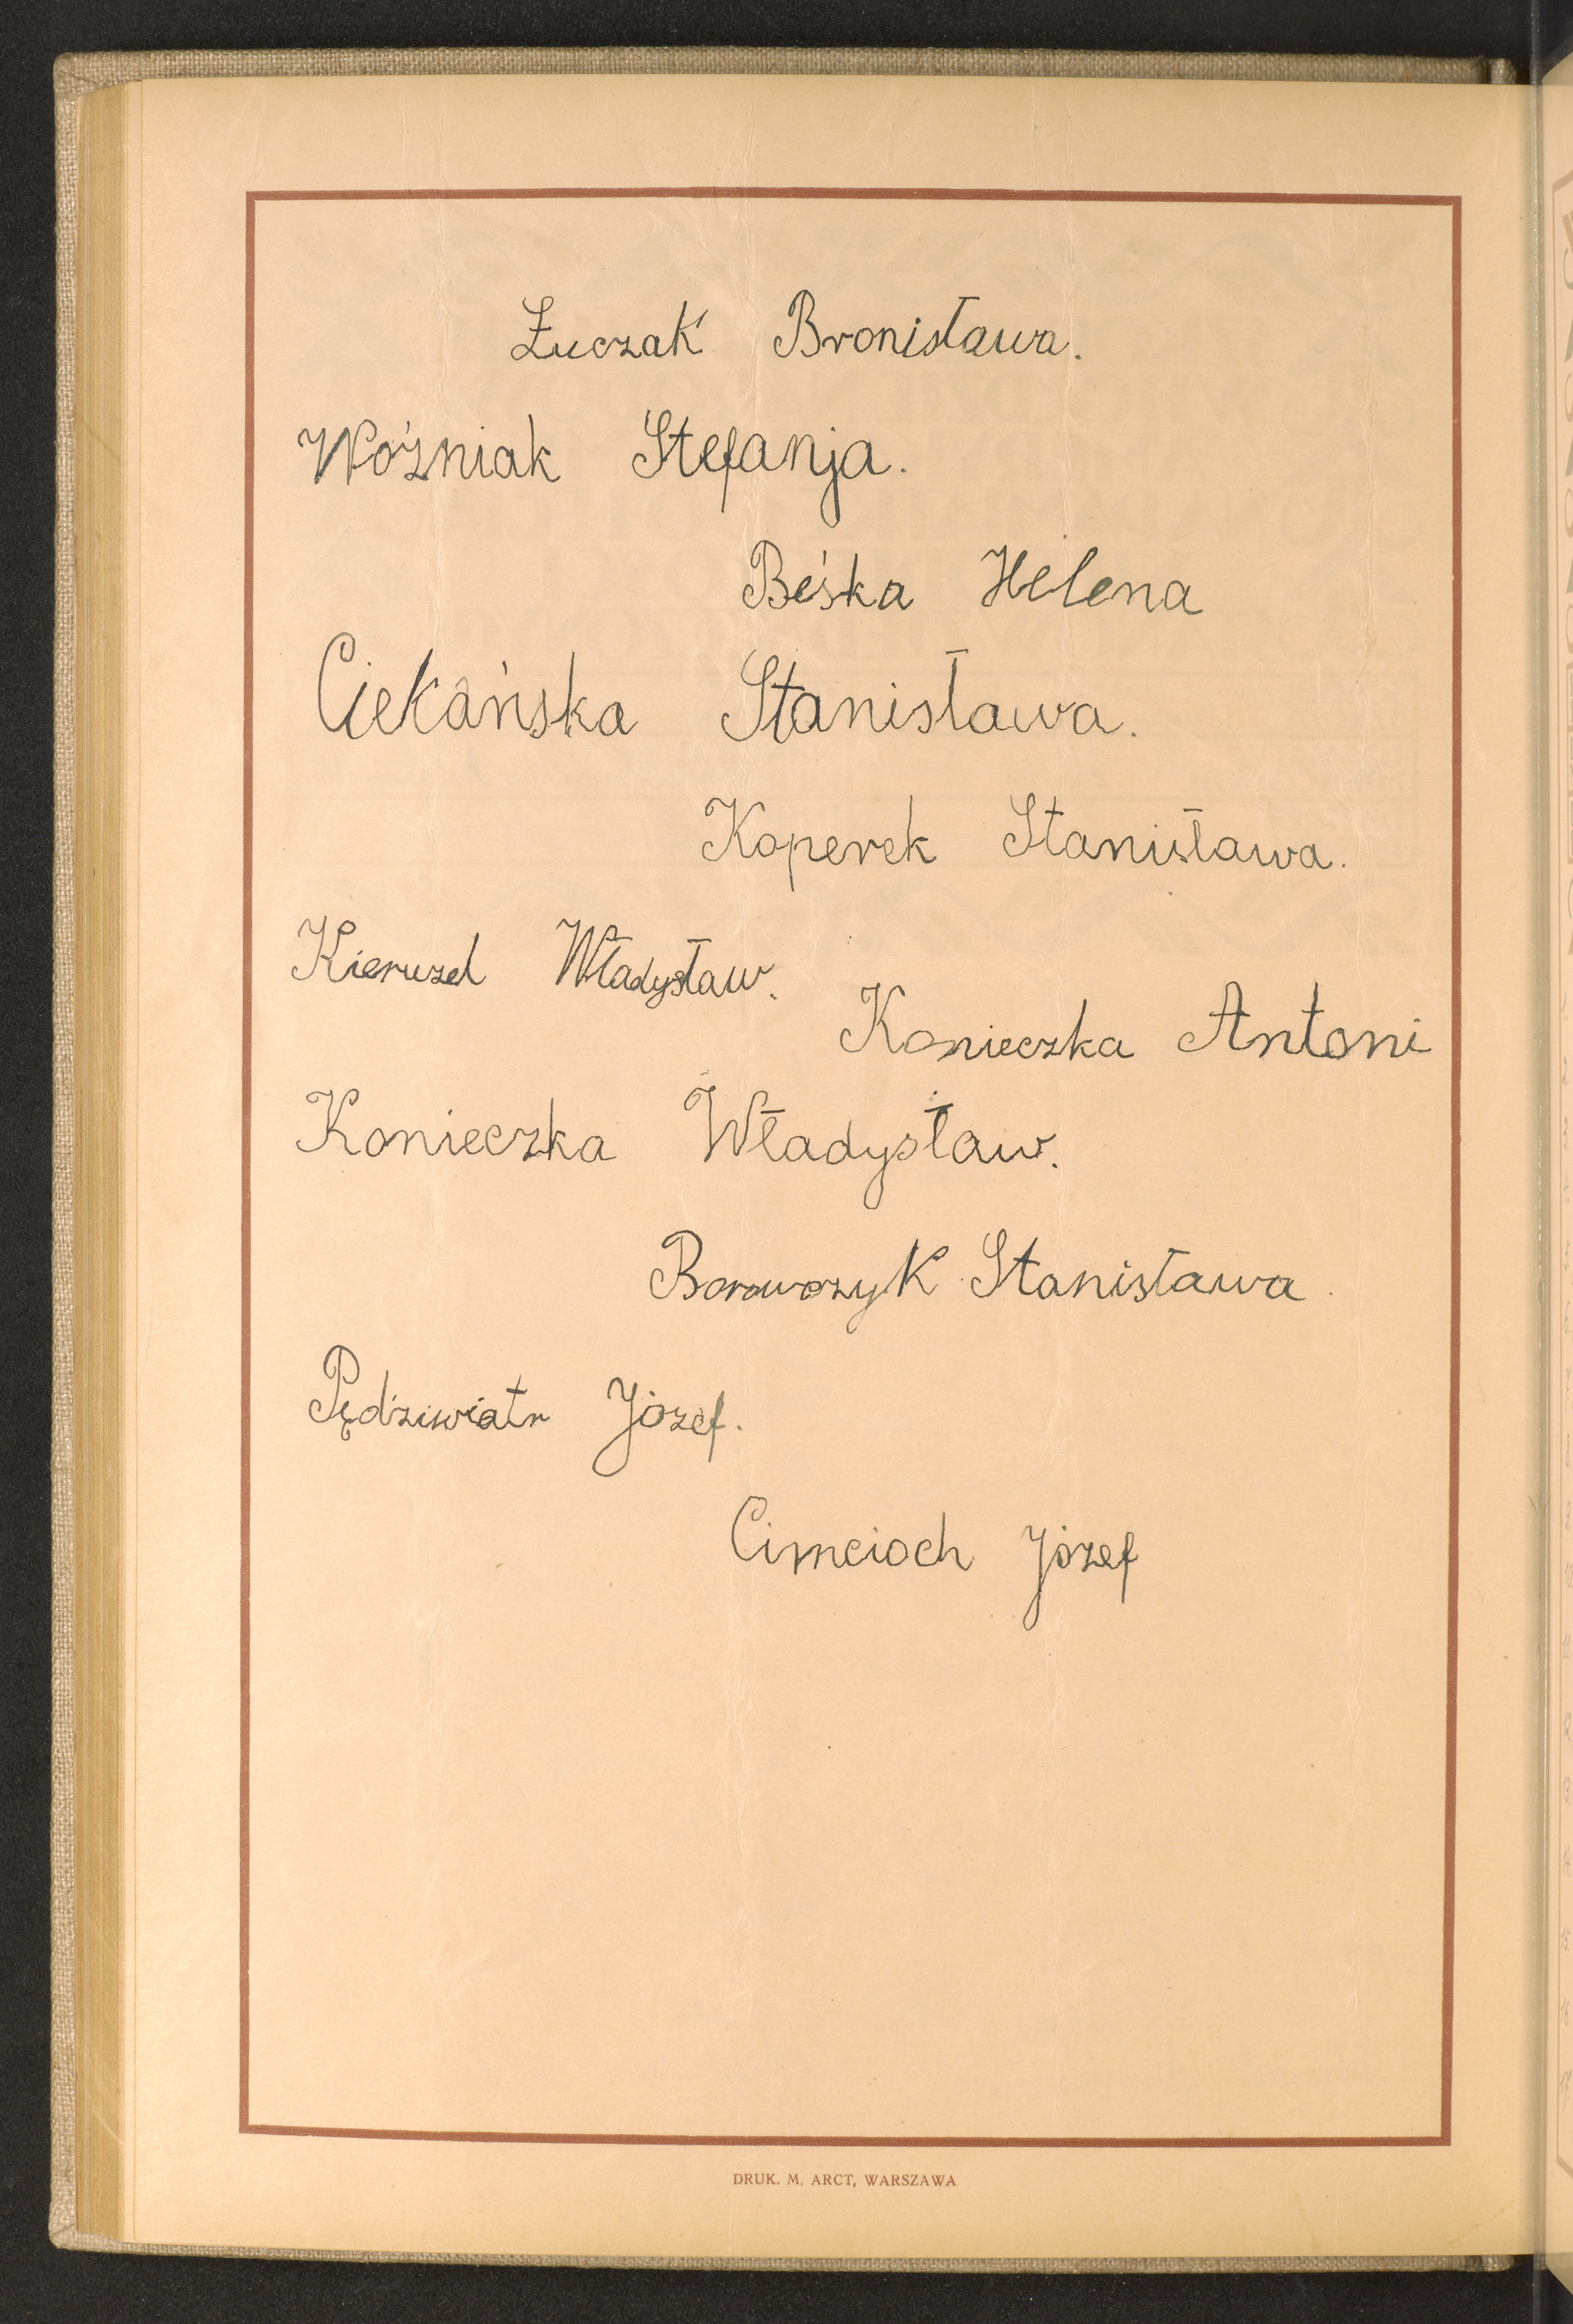 Łuczak Bronisława.
Woźniak Stefanja.
Beśka Helena
Ciekańska Stanisława.
Koperek Stanisława.
Kieruzel Władysław.
Konieczka Antoni
Konieczka Władysław.
Borowczyk Stanisława.
Pędziwiatr Józef.
Cimcioch Józef
DRUK. M. ARCT, WARSZAWA